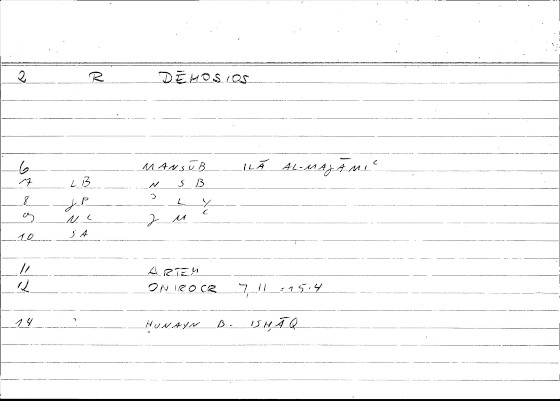 2 R DĒMOSIOS
6 MANSŪB ILĀ AL-MAJĀMIʿ
7 LB N S B
8 JP ʾ L Y
9 NC J M ʿ
10 SA
11 ARTEM
12 ONIROCR 7,11 = 15.4
14 ḤUNAYN B. ISḤĀQ